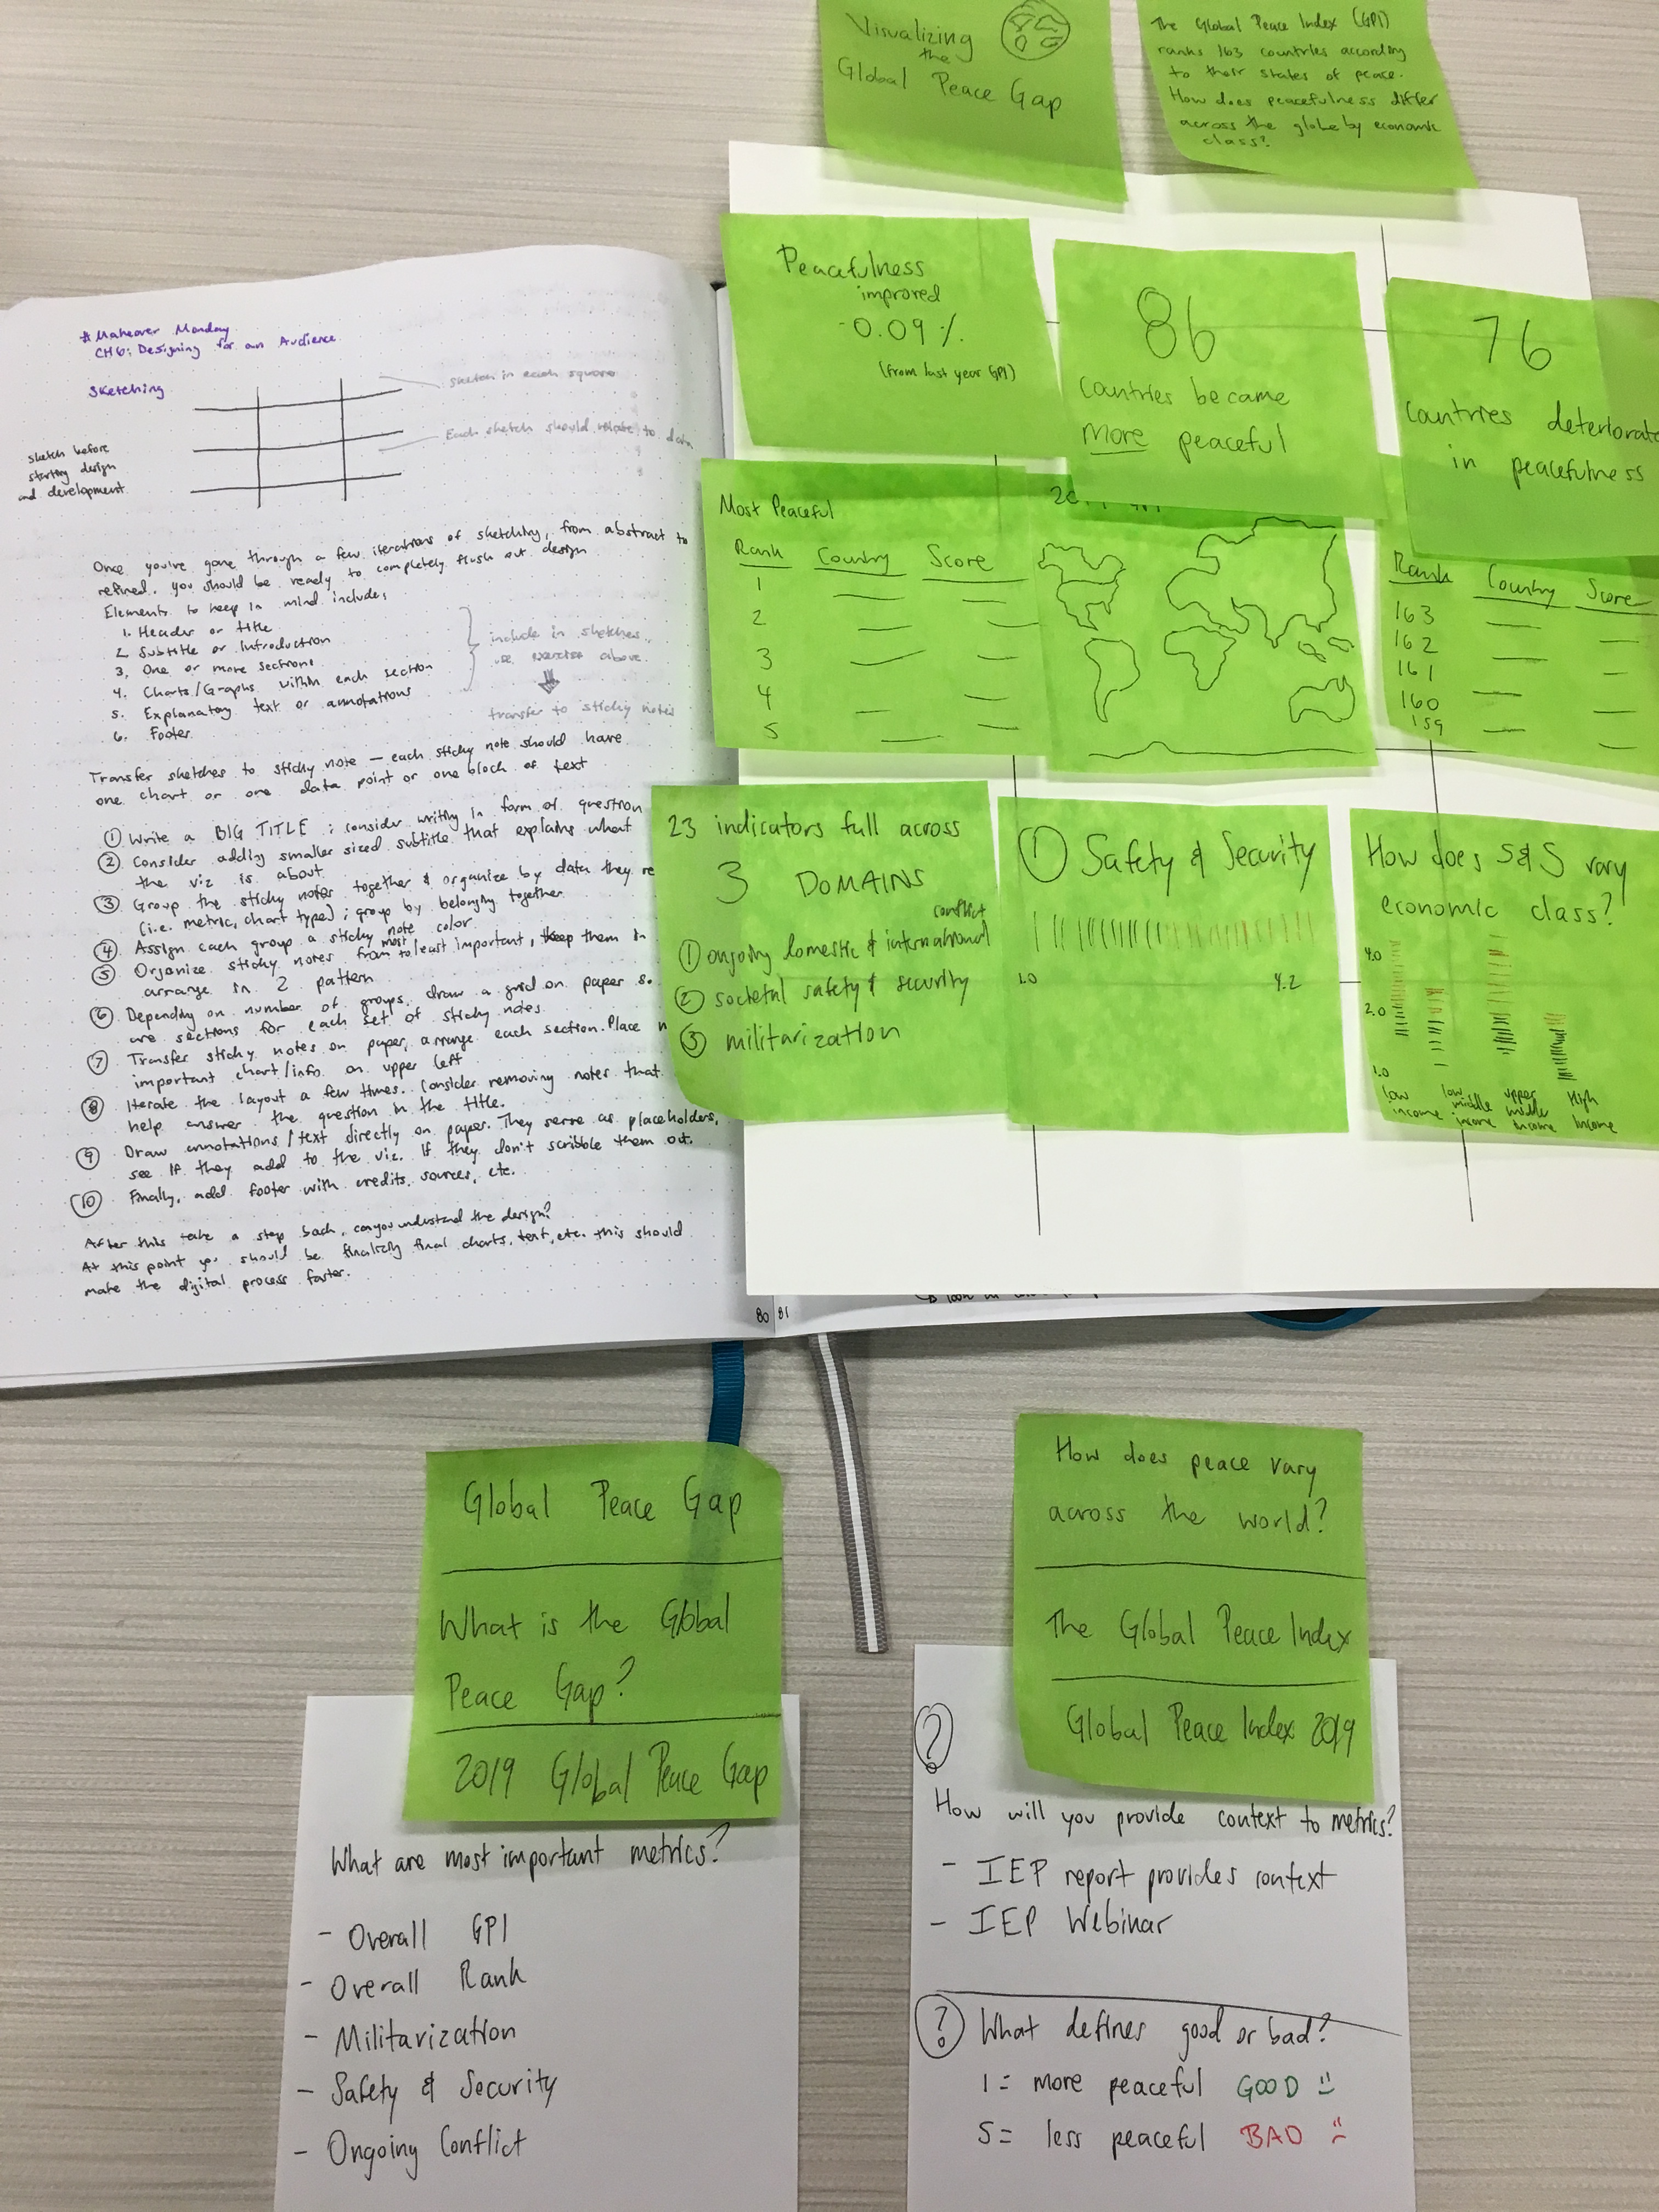 Visualizing
the
Global Peace Gap
The Global Peace Index (GPI)
ranks 163 countries according
to their states of peace.
How does peacefulness differ
across the globe by economic
class?
Peacefulness
improved
-0.09 %
(from last year GPI)
86
Countries became
more peaceful
76
Countries deteriorate
in peacefulness
Most Peaceful
Rank Country Score
1
2
3
4
5
Rank Country Score
163
162
161
160
159
23 indicators full across
3 DOMAINS
conflict
① ongoing domestic & international
② societal safety & security
③ militarization
① Safety & Security
1.0 4.2
How does S&S vary
economic class?
4.0
2.0
1.0
low income
low middle income
upper middle income
High income
# Makeover Monday
CH6: Designing for an Audience
Sketching
sketch in each square
Each sketch should relate to data
sketch before
starting design
and development
Once you've gone through a few iterations of sketching, from abstract to
refined, you should be ready to completely flush out design
Elements to keep in mind include:
1. Header or title
2. Subtitle or Introduction
3. One or more sections
4. Charts/Graphs within each section
5. Explanatory text or annotations
6. Footer
include in sketches,
use exercise above.
transfer to sticky notes
Transfer sketches to sticky note — each sticky note should have
one chart or one data point or one block of text
① Write a BIG TITLE ; consider writing in form of question
② Consider adding smaller sized subtitle that explains what
the viz is about
③ Group the sticky notes together & organize by data they re
(i.e. metric, chart type) ; group by belonging together
④ Assign each group a sticky note color
⑤ Organize sticky notes from most to least important, keep them in
arrange in Z pattern
⑥ Depending on number of groups, draw a grid on paper so
are sections for each set of sticky notes
⑦ Transfer sticky notes on paper, arrange each section. Place
important chart/info on upper left
⑧ Iterate the layout a few times. Consider removing notes that
help answer the question in the title.
⑨ Draw annotations/text directly on paper. They serve as placeholders,
see if they add to the viz. If they don't scribble them out.
⑩ Finally, add footer with credits, sources, etc.
After this take a step back, can you understand the design?
At this point you should be finalizing final charts, text, etc. this should
make the digital process faster.
80 81
Global Peace Gap
What is the Global
Peace Gap?
2019 Global Peace Gap
What are most important metrics?
- Overall GPI
- Overall Rank
- Militarization
- Safety & Security
- Ongoing Conflict
How does peace vary
across the world?
The Global Peace Index
Global Peace Index 2019
?
How will you provide context to metrics?
- IEP report provides context
- IEP Webinar
? What defines good or bad?
1 = more peaceful GOOD :)
5 = less peaceful BAD :(